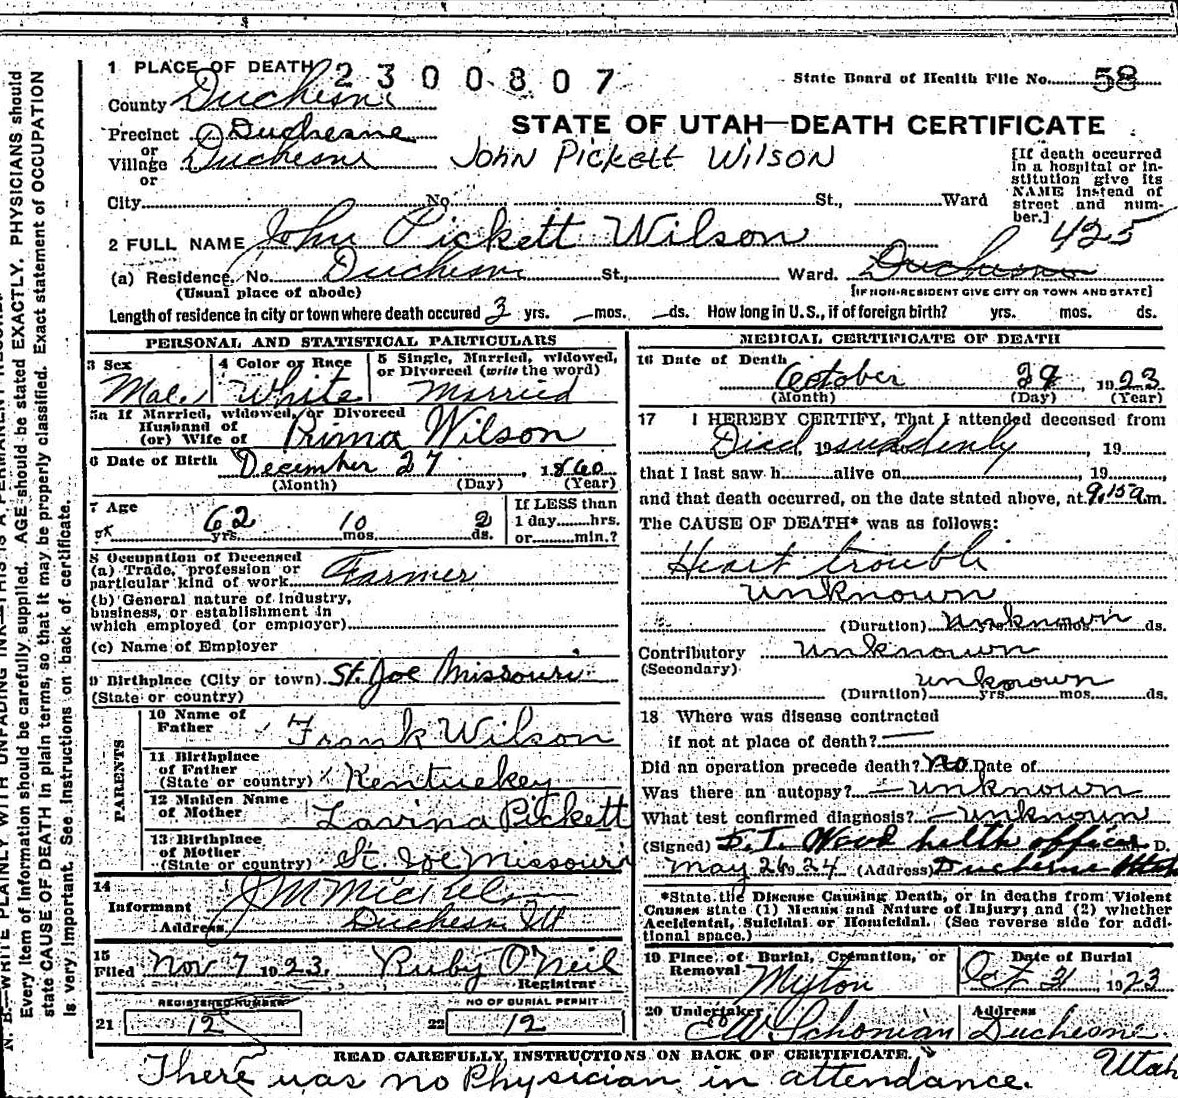 1 PLACE OF DEATH 2300807
State Board of Health File No. 58
County Duchesne
STATE OF UTAH—DEATH CERTIFICATE
Precinct Duchesne
or
Village Duchesne
John Pickett Wilson
or
[If death occurred in a hospital or institution give its NAME instead of street and number.]
City No. St., Ward
425
2 FULL NAME John Pickett Wilson
(a) Residence, No. Duchesne St., Ward. Duchesne
(Usual place of abode) [IF NON-RESIDENT GIVE CITY OR TOWN AND STATE]
Length of residence in city or town where death occured 3 yrs. — mos. — ds. How long in U.S., if of foreign birth? yrs. mos. ds.
PERSONAL AND STATISTICAL PARTICULARS
3 Sex
Male
4 Color or Race
White
5 Single, Married, widowed, or Divorced (write the word)
Married
5a If Married, widowed, or Divorced
Husband of
(or) Wife of Rima Wilson
6 Date of Birth December 27, 1860
(Month) (Day) (Year)
7 Age
62 yrs. 10 mos. 2 ds.
If LESS than
1 day hrs.
or min.?
8 Occupation of Deceased
(a) Trade, profession or
particular kind of work Farmer
(b) General nature of industry,
business, or establishment in
which employed (or employer)
(c) Name of Employer
9 Birthplace (City or town) St. Joe Missouri
(State or country)
PARENTS
10 Name of
Father Frank Wilson
11 Birthplace
of Father
(State or country) Kentuckey
12 Maiden Name
of Mother Lavina Pickett
13 Birthplace
of Mother
(State or country) St. Joe Missouri
14
Informant J M
Address Duchesne Ut
15
Filed Nov 7 1923. Ruby O'Neil
Registrar
REGISTERED NUMBER
21 12
NO OF BURIAL PERMIT
22 12
MEDICAL CERTIFICATE OF DEATH
16 Date of Death
October 29 1923
(Month) (Day) (Year)
17 I HEREBY CERTIFY, That I attended deceased from
Died 19 suddenly, 19
that I last saw h alive on 19
and that death occurred, on the date stated above, at 9.15 a m.
The CAUSE OF DEATH* was as follows:
Heart trouble
unknown
(Duration) unknown yrs. mos. ds.
Contributory unknown
(Secondary)
unknown
(Duration) yrs. mos. ds.
18 Where was disease contracted
if not at place of death? —
Did an operation precede death? no Date of
Was there an autopsy? — unknown
What test confirmed diagnosis? — unknown
(Signed) Wood helth officer D.
May 26 1924 (Address) Duchesne Utah
*State the Disease Causing Death, or in deaths from Violent
Causes state (1) Means and Nature of Injury; and (2) whether
Accidental, Suicidal or Homicidal. (See reverse side for additional space.)
19 Place of Burial, Cremation, or
Removal Myton
Date of Burial
Oct 31 1923
20 Undertaker
E W Schonian
Address
Duchesne
Utah
READ CAREFULLY, INSTRUCTIONS ON BACK OF CERTIFICATE.
There was no Physician in attendance.
N. B.—WRITE PLAINLY WITH UNFADING INK—THIS IS A PERMANENT RECORD.
Every item of information should be carefully supplied. AGE should be stated EXACTLY. PHYSICIANS should
state CAUSE OF DEATH in plain terms, so that it may be properly classified. Exact statement of OCCUPATION
is very important. See instructions on back of certificate.